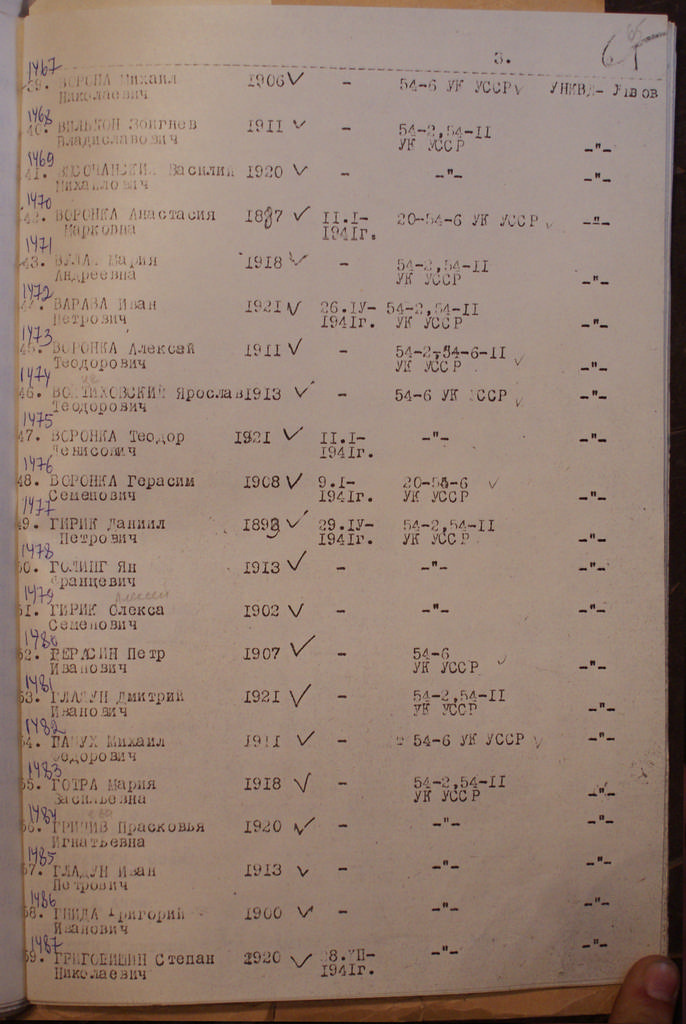 3. 65
1467
39. ВОРОНА Михаил 1906 ✓ - 54-6 УК УССР ✓ УНКВД- Львов
Николаевич
1468
40. ВИЛЬКОН Збигнев 1911 ✓ - 54-2,54-II
Владиславович УК УССР -"-
1469
41. Василий 1920 ✓ - -"- -"-
Михайлович
1470
42. ВОРОНКА Анастасия 1887 ✓ II.I- 20-54-6 УК УССР ✓ -"-
Марковна 1941г.
1471
43. Мария 1918 ✓ - 54-2,54-II
Андреевна УК УССР -"-
1472
44. ВАРАВА Иван 1921 ✓ 26.IУ- 54-2,54-II
Петрович 1941г. УК УССР -"-
1473
45. ВОРОНКА Алексей 1911 ✓ - 54-2-54-6-II
Теодорович УК УССР ✓ -"-
1474
46. Ярослав 1913 ✓ - 54-6 УК УССР ✓ -"-
Теодорович
1475
47. ВОРОНКА Теодор 1921 ✓ II.I- -"- -"-
Денисович 1941г.
1476
48. ВОРОНКА Герасим 1908 ✓ 9.I- ✓
Семенович 1941г. УК УССР -"-
1477
49. ГИРИК Даниил 1893 ✓ 29.IУ- 54-2,54-II
Петрович 1941г. УК УССР -"-
1478
50. ГОЛИНГ Ян 1913 ✓ - -"- -"-
Францевич
1479 Алексей
51. ГИРИК Олекса 1902 ✓ - -"- -"-
Семенович
1480
52. Петр 1907 ✓ - 54-6
Иванович УК УССР ✓ -"-
1481
53. ГЛАДУН Дмитрий 1921 ✓ - 54-2,54-II
Иванович УК УССР -"-
1482
54. Михаил 1911 ✓ - 54-6 УК УССР ✓ -"-
Федорович
1483
55. ГОТРА Мария 1918 ✓ - 54-2,54-II
Васильевна УК УССР -"-
1484
56. Прасковья 1920 ✓ - -"- -"-
Игнатьевна
1485
57. ГЛАДУН Иван 1913 ✓ - -"- -"-
Петрович
1486
58. ГНИДА Григорий 1900 ✓ - -"- -"-
Иванович
1487
59. Степан 1920 ✓ -"- -"-
Николаевич 1941г.